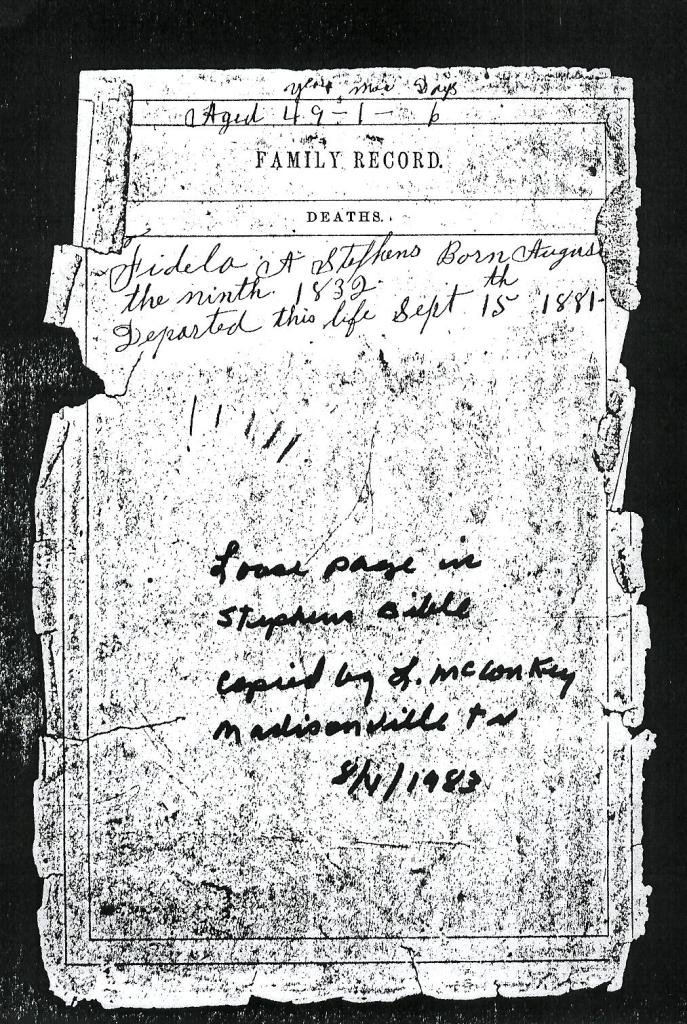 years mos Days
Aged 49-1-6
FAMILY RECORD.
DEATHS.
Fidela A Stephens Born Augus
the ninth. 1832.
Departed this life Sept 15th 1881-
Loose page in
Stephens Bible
copied by L. McConkey
Madisonville Tn
8/1/1983